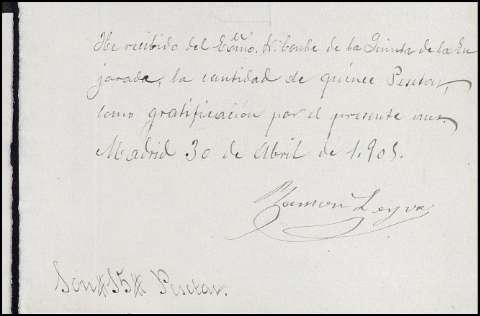 He recibido del Excmo. Sr. Conde de la Quinta de la En
jarada, la cantidad de quince Pesetas,
como gratificación por el presente mes.
Madrid 30 de Abril de 1.905.
Ramon Leyva
Son #15# Pesetas.